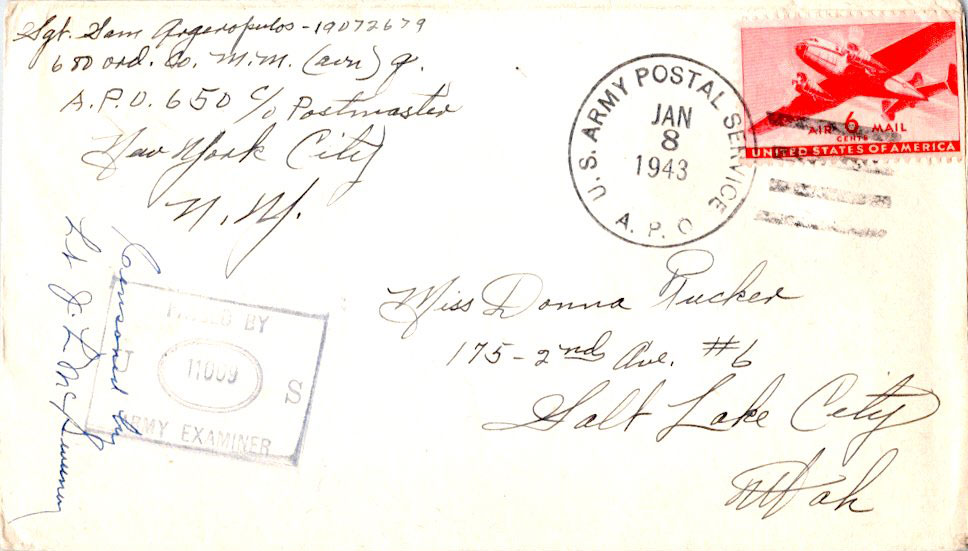 Sgt. Sam Argeropulos - 19072679
680 ord. Co. M.M. (avn) Q.
A.P.O. 650 c/o Postmaster
New York City
N.Y.
U.S. ARMY POSTAL SERVICE
JAN
8
1943
A.P.O.
AIR 6 MAIL
CENTS
UNITED STATES OF AMERICA
Miss Donna Rucker
175-2nd Ave. #6
Salt Lake City
Utah
PASSED BY
U 11009 S
ARMY EXAMINER
Censored by
Lt J. L.